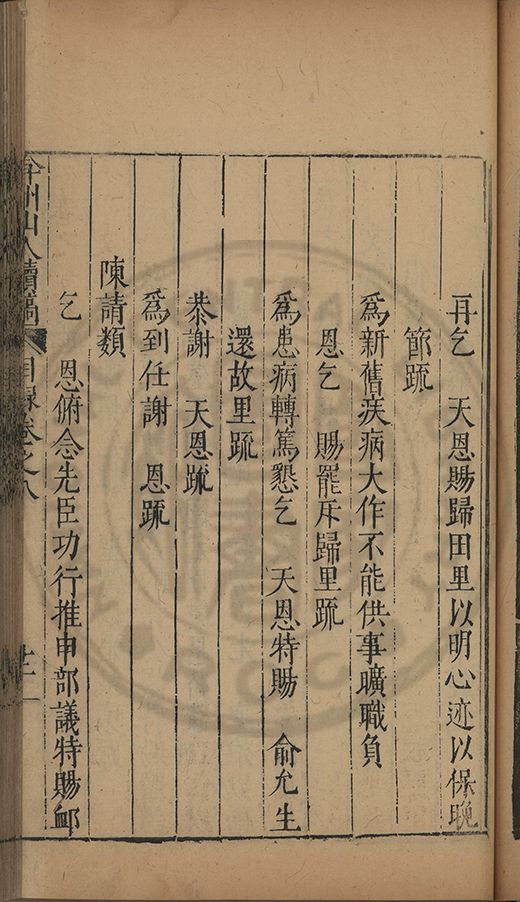 再乞　天恩賜歸田里以明心迹以保晚
節疏
爲新舊疾病大作不能供事曠職負
恩乞　賜罷斥歸里疏
爲患病轉篤懇乞　天恩特賜　俞允生
還故里疏
恭謝　天恩疏
爲到任謝　恩疏
陳請類
乞　恩俯念先臣功行推申部議特賜䘏
弇州山人續稿　目録卷之八